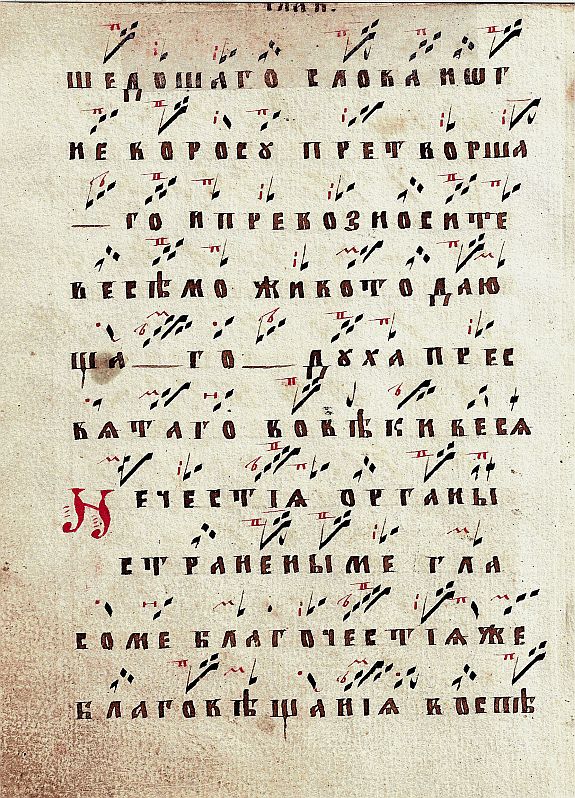 шедошаго слова и ѡг
не воросу претворша
— го и превозносите
весѣмо животодаю
ща — го — духа прес
вѧтаго вовѣки весѧ
Нечестіѧ органы
странеными гла
соме благочестіѧ же
благовѣщаніѧ воспѣ